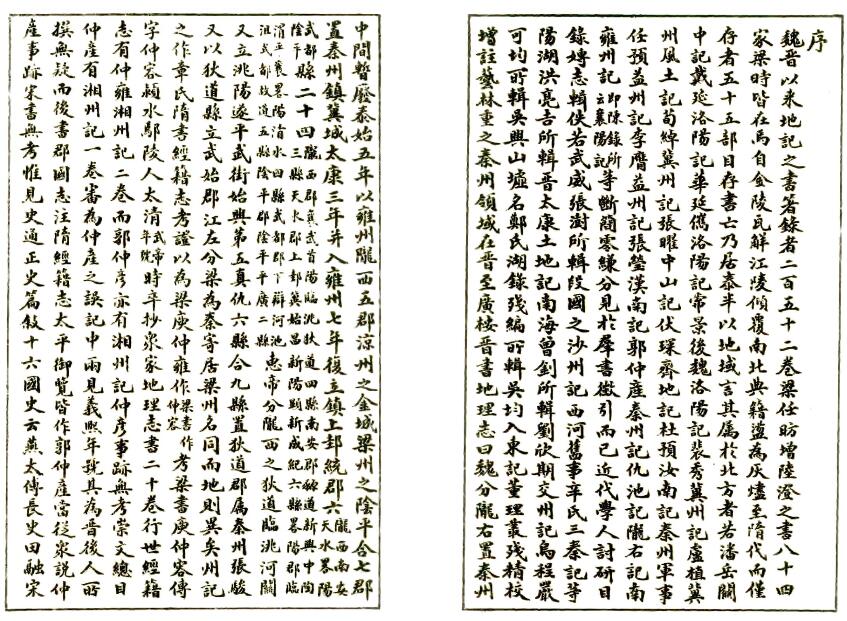 序
魏晉以來地記之書著錄者二百五十二卷梁任昉增陸澄之書八十四
家梁時皆在焉自金陵瓦解江陵傾覆南北典籍盪為灰燼至隋代而僅
存者五十五部目存書亡乃居泰半以地域言其屬於北方者若潘岳關
中記戴延洛陽記華延儁洛陽記常景後魏洛陽記裴秀冀州記盧植冀
州風土記荀綽冀州記張曜中山記伏琛齊地記杜預汝南記秦州軍事
任預益州記李膺益州記張瑩漢南記郭仲產秦州記仇池記隴右記南
雍州記即陳錄所云襄陽記等斷簡零縑分見於羣書徵引而已近代學人討研目
錄志輯佚若武威張澍所輯段國之沙州記西河舊事辛氏三秦記等
陽湖洪亮吉所輯晉太康土地記南海曾釗所輯劉欣期交州記烏程嚴
可均所輯吳興山墟名鄭氏湖錄殘編所輯吳均入東記董理叢殘精校
增註藝林重之秦州領域在晉至廣桉晉書地理志曰魏分隴右置秦州
中間暫廢泰始五年以雍州隴西五郡涼州之金城梁州之陰平合七郡
置秦州鎮冀城太康三年并入雍州七年復立鎮上邽統郡六隴西南安天水畧陽
武都陰平縣二十四隴西郡襄武首陽臨洮狄道四縣南安郡道新興中陶三縣天水郡上邽冀始昌新陽顯新成紀六縣畧陽郡臨
渭平襄畧陽清水四縣武都郡下辯河池沮武都故道五縣陰平郡陰平平廣二縣惠帝分隴西之狄道臨洮河關
又立洮陽遂平武街始興第五真仇六縣合九縣置狄道郡屬秦州張駿
又以狄道縣立武始郡江左分梁為秦寄居梁州名同而地則異矣州記
之作章氏隋書經籍志考證以為梁庾仲雍作梁書作仲容考梁書庾仲容傳
字仲容潁水鄢陵人太清武帝年號時卒抄眾家地理志書二十卷行世經籍
志有仲雍湘州記二卷而郭仲彥亦有湘州記仲彥事跡無考崇文總目
仲產有湘州記一卷審為仲產之誤記中兩見義熙年號其為晉後人所
撰無疑而後書郡國志注隋經籍志太平御覽皆作郭仲產當從眾說仲
產事跡宋書無考惟見史通正史篇敍十六國史云燕太傅長史田融宋